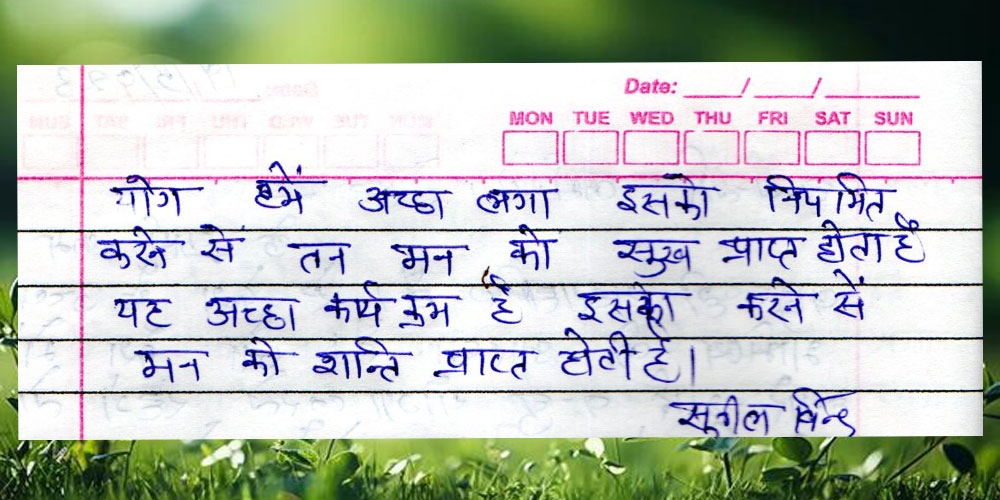 Date: ___/___/______
MON TUE WED THU FRI SAT SUN
योग हमें अच्छा लगा इसको नियमित
करने से तन मन को सुख प्राप्त होता है
यह अच्छा कार्य क्रम है इसको करने सें
मन को शान्ति प्राप्त होती है।
सुनील